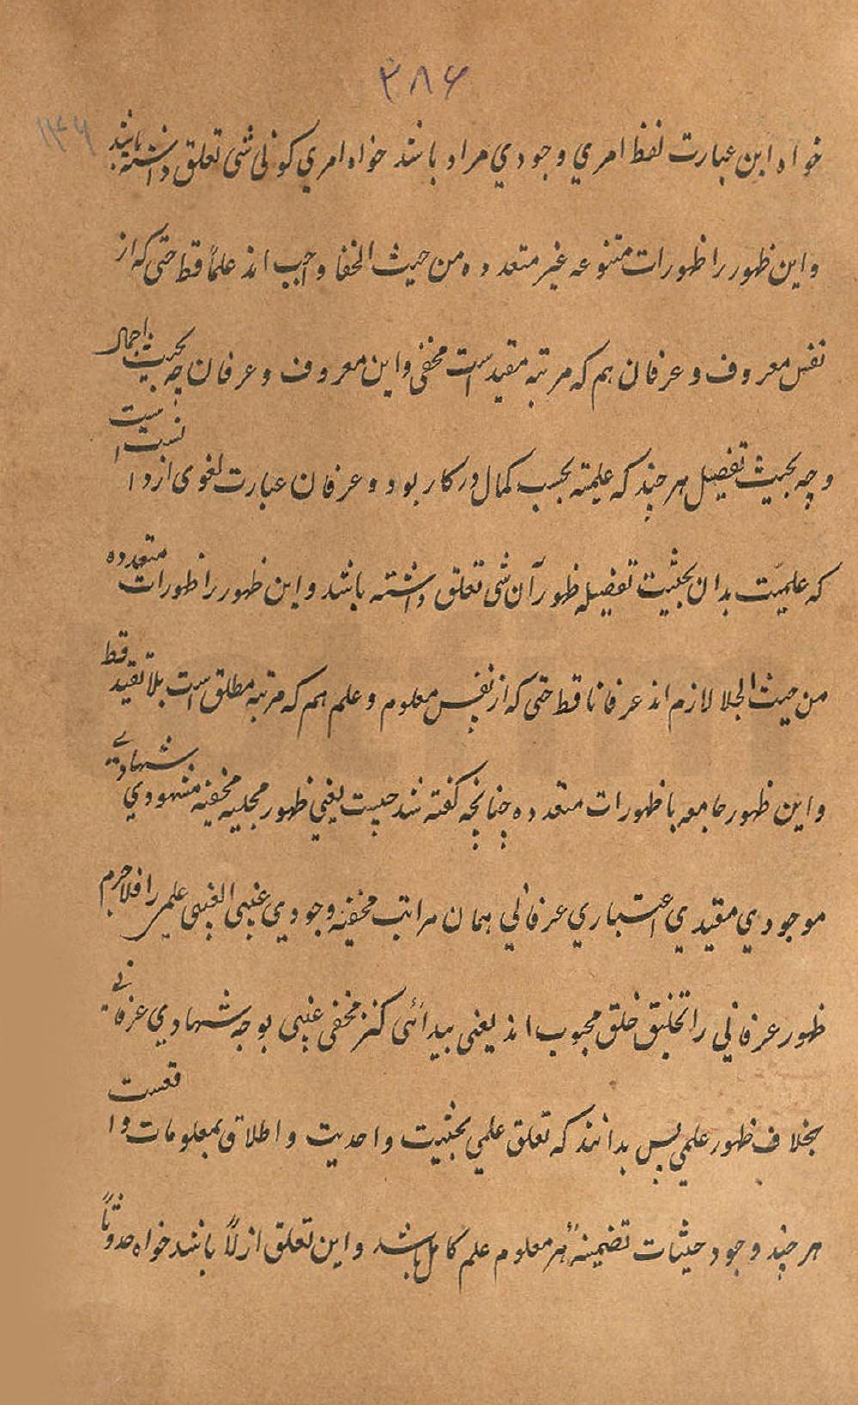 ۳۸۶
۱۳۶
خواه ازین عبارت لفظ امری وجودی مراد باشد خواه امری کونی شی تعلق داشته باشد
و این ظهور را ظهورات متنوعه غیر متعدده من حیث الخفا واجب اند علماً قط حتی که از
نفس معروف و عرفان هم که مرتبه مقید است مخفی و این معروف و عرفان چه بحیث اجمال
و چه بحیث تفصیل هر چند که علمیته بحسب کمال در کار بود و عرفان عبارت لغوی از دانست است
که علمیت بدان بحیثیت تفضیله ظهور آن شی تعلق داشته باشد و این ظهور را ظهورات متعدده
من حیث الجلا لازم اند عرفانا قط حتی که از نفس معلوم و علم هم که مرتبه مطلق است بلا تقید قط
و این ظهور جامعه با ظهورات متعدده چنانچه گفته شد چیست یعنی ظهور مجلیه مخفیه مشهودی شهادی
موجودی مقیدی اعتباری عرفانی همان مراتب مخفیه وجودی غیبی الغیبی علمی را فلاجرم
ظهور عرفانی را تخلیق خلق محبوب اند یعنی پیدائی کنز مخفی غیبی بوجه شهادی عرفانی
بخلاف ظهور علمی پس بدانند که تعلق علمی بحیثیت واحدیت و اطلاق بمعلومات واقعست
هر چند وجود حیثیات تضمینهٔ هر معلوم علم کامل باشد و این تعلق ازلاً باشد خواه حدوثاً